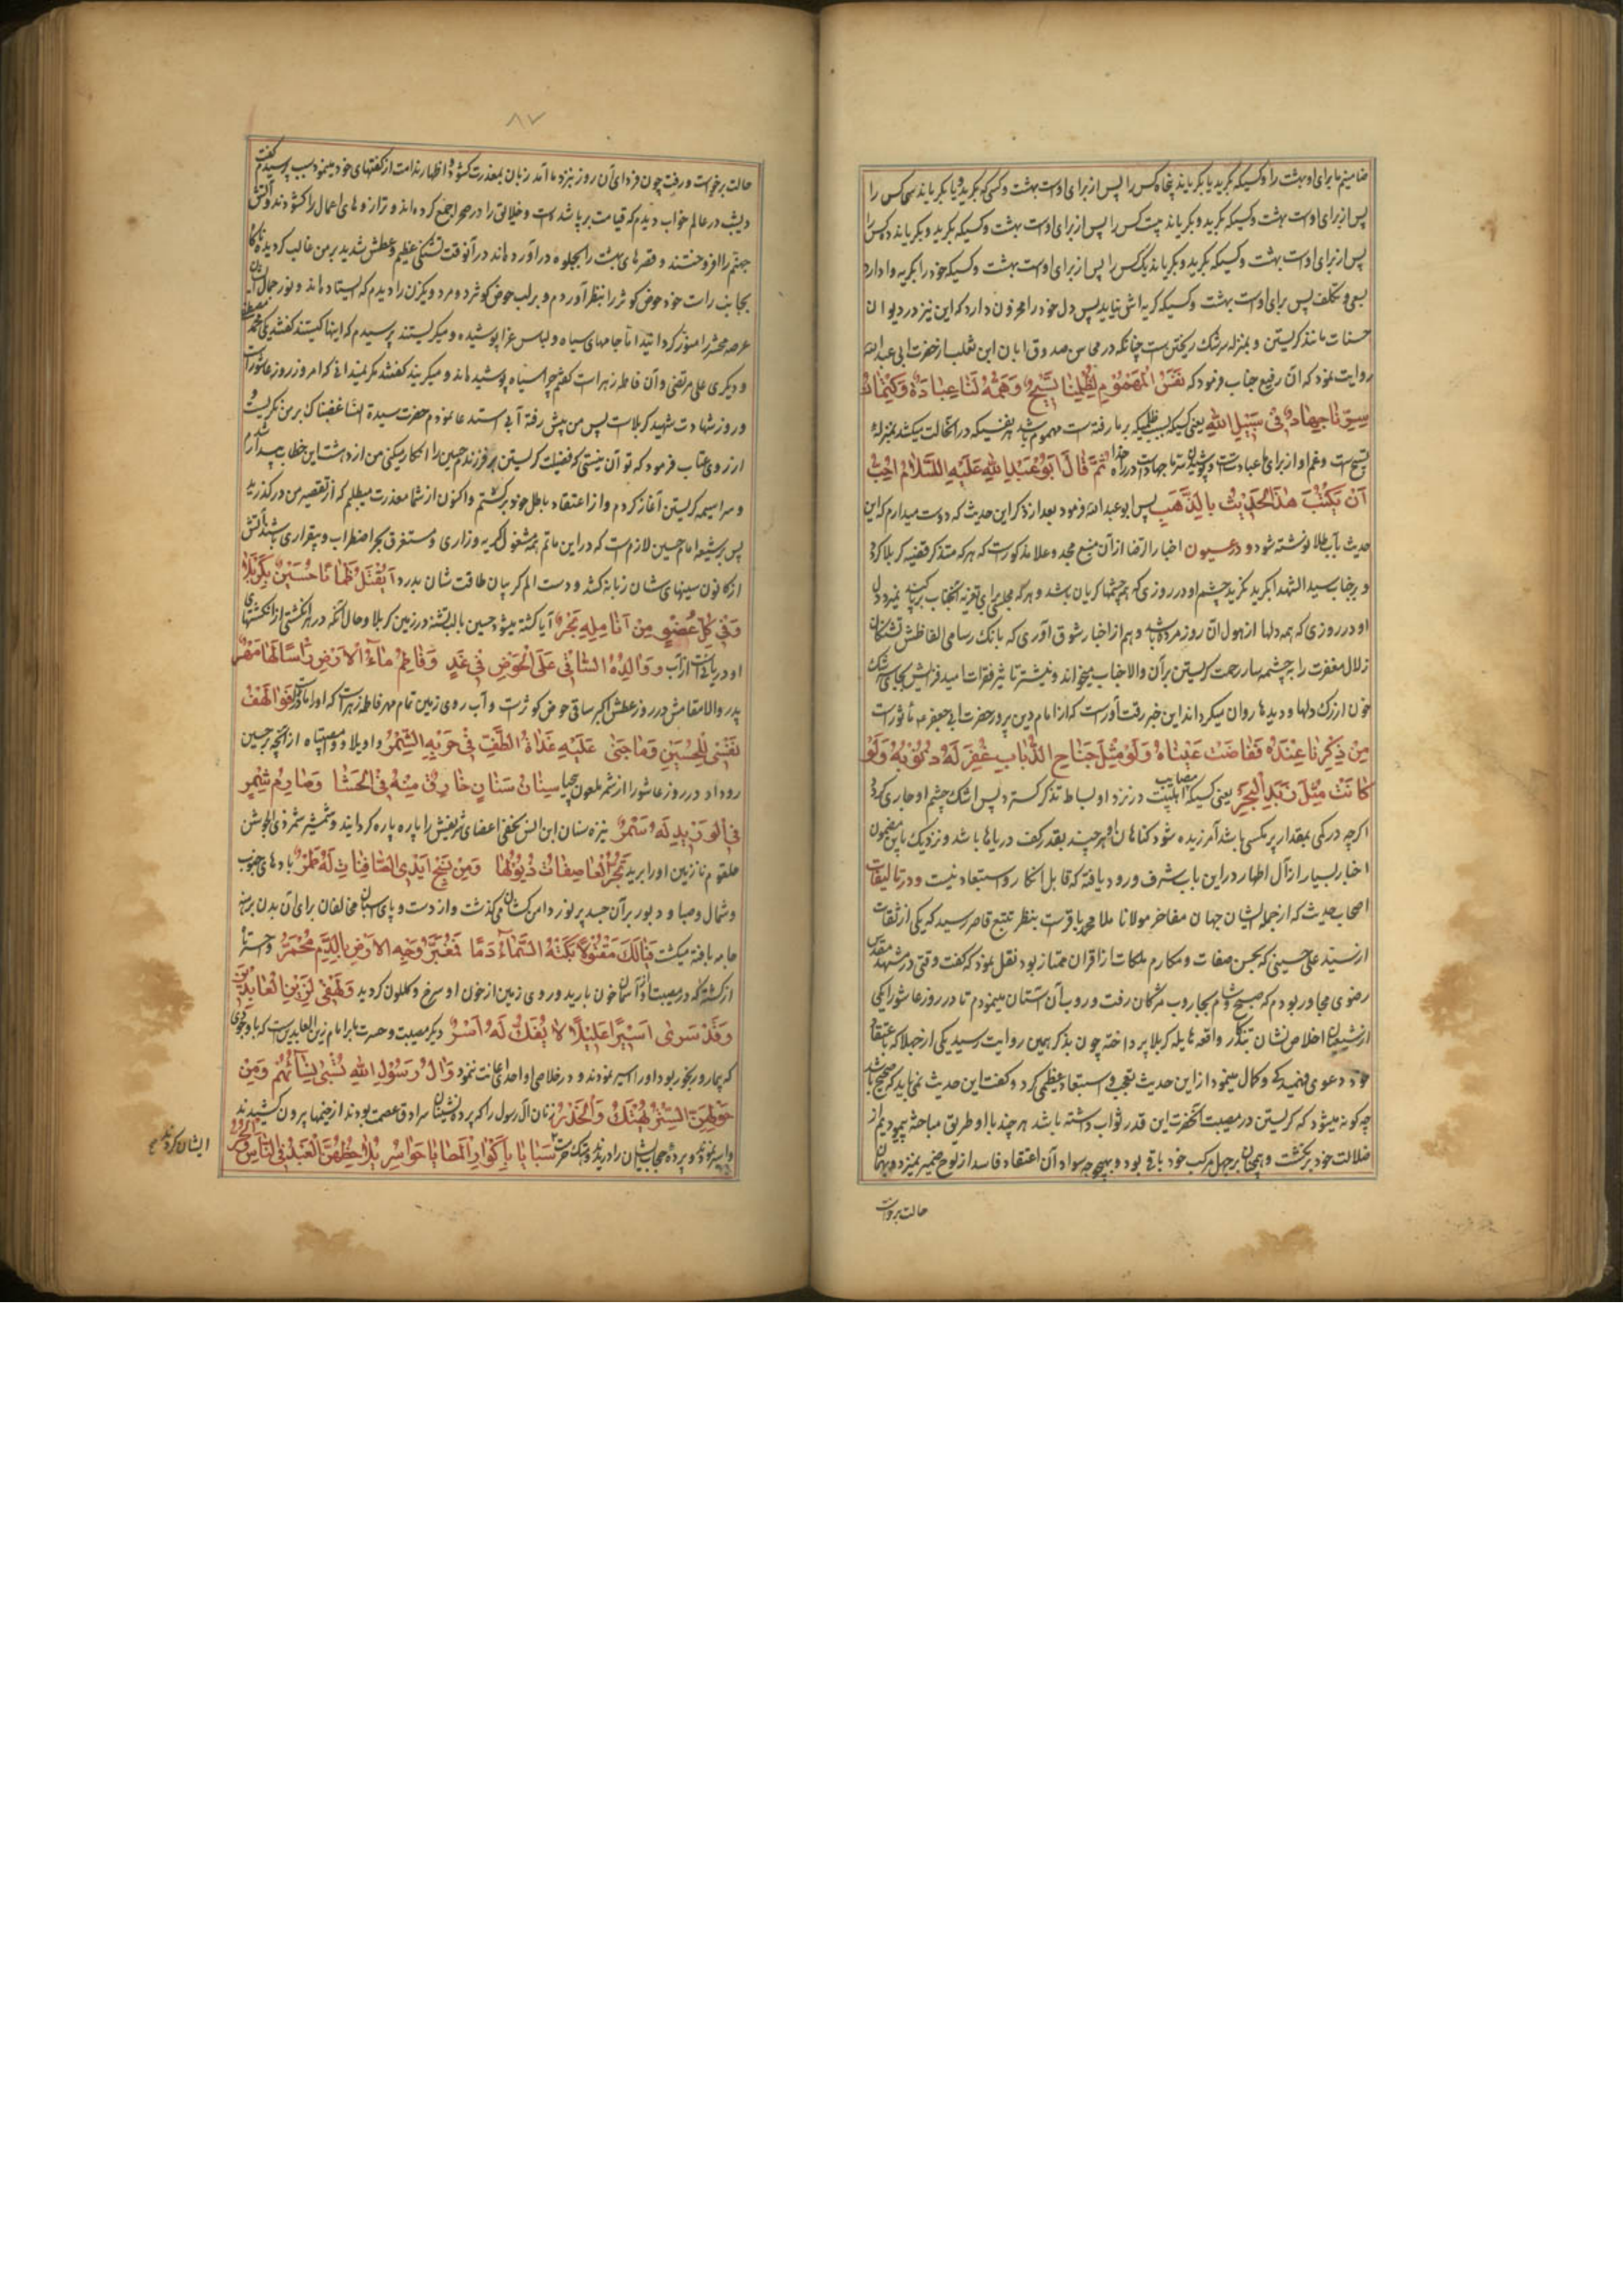 ضامنیم ما برای او بهشت را و کسیکه بگرید یا بگریاند پنجاه کس را پس از برای اوست بهشت و کسی که بگرید و یا بگریاند سی کس را
پس از برای اوست بهشت و کسیکه بگرید و بگریاند بیست کس را پس از برای اوست بهشت و کسیکه بگرید و بگریاند ده کس را
پس از برای اوست بهشت و کسیکه بگرید و بگریاند یک کس را پس از برای اوست بهشت و کسیکه خود را بگریه وا دارد
بسعی و تکلف پس برای اوست بهشت و کسیکه گریه اش نیاید پس دل خود را محزون دارد که این نیز در دیوان
حسنات مانند گریستن و بمنزله سرشک ریختن است چنانکه در مجالس صدوق ابان ابن تغلب از حضرت ابی عبد الله
روایت نمود که آن رفیع جناب فرمود که نَفَسُ الْمَهْمُومِ لِظُلْمِنَا تَسْبِيحٌ وَهَمُّهُ لَنَا عِبَادَةٌ وَكِتْمَانُ
سِرِّنَا جِهَادٌ فِى سَبِيلِ اللهِ یعنی کسیکه بسبب ظلمیکه بر ما رفته است مهموم باشد هر نفسیکه در آنحالت میکشد بمنزله
تسبیح است و غم او از برای ما عبادتست و پوشیدن سر ما جهادست در راه خدا ثُمَّ قَالَ اَبُو عَبْدِ اللهِ عَلَيْهِ السَّلَامُ يَجِبُ
اَنْ يُكْتَبَ هٰذَا الْحَدِيثُ بِالذَّهَبِ پس ابو عبد الله فرمود بعد از ذکر این حدیث که دوست میدارم که این
حدیث بآب طلا نوشته شود و در عیون اخبار الرضا از آن منبع مجد و علا مذکورست که هر که متذکر قضیه کربلا گردد
و بر جناب سید الشهدا بگرید نگرید چشم او در روزی که همه چشمها گریان باشد و هر که مجلسی برای تعزیه آنجناب برپا کند نمیرد دل
او در روزی که همه دلها از هول آن روز مرده باشد و هم از اخبار شوق آوری که بانک رسامی الفاظش تشنگان
زلال مغفرت را بر چشمه سار رحمت گریستن بر آن والا جناب میخواند و نیشتر تاثیر فقرات امید فزایش بجای اشک
خون از رگ دلها و دیدها روان میگرداند این خبر رقت آورست که از امام دین پرور حضرت ابی جعفر ع ماثورست
مَنْ ذُكِرْنَا عِنْدَهُ فَفَاضَتْ عَيْنَاهُ وَلَوْ مِثْلَ جَنَاحِ الذُّبَابِ غُفِرَ لَهُ ذُنُوبُهُ وَلَوْ
كَانَتْ مِثْلَ زَبَدِ الْبَحْرِ یعنی کسیکه مصایب اهلبیت در نزد او بساط تذکر گسترد پس اشک چشم او جاری گردد
اگرچه در کمی بمقدار پر مگسی باشد آمرزیده شود گناهان او هر چند بقدر کف دریاها باشد و نزدیک باین مضمون
اخبار بسیار از آل اطهار در این باب شرف ورود یافته که قابل انکار و استبعاد نیست و در تالیفات
اصحاب حدیث که از جمله ایشان جهان مفاخر مولانا ملا محمد باقرست بنظر تتبع قاصر رسید که یکی از ثقات
از سید علی حسینی که بحسن صفات و مکارم ملکات از اقران ممتاز بود نقل نمود که گفت وقتی در مشهد مقدس
رضوی مجاور بودم که صبح و شام بجاروب مژگان رفت و روب آن آستان مینمودم تا در روز عاشورا یکی
از شیعیان اخلاص نشان بتذکر واقعه هایله کربلا پرداخته چون بذکر همین روایت رسید یکی از جهلا که باعتقاد
خود دعوی فهمیدگی و کمال مینمود از این حدیث تعجب و استبعاد عظیمی کرد و گفت این حدیث نمی باید که صحیح باشد
چه گونه میشود که گریستن در مصیبت آنحضرت این قدر ثواب داشته باشد هر چند با او طریق مباحثه پیمودیم از
ضلالت خود برنگشت و همچنان بر جهل مرکب خود باقی بود و بهیچ وجه سواد آن اعتقاد فاسد از لوح ضمیر نمیزدود و بهمان
حالت برخواست
۸۷
حالت برخواست و رفت چون فردای آن روز بنزد ما آمد زبان بمعذرت گشود و اظهار ندامت از گفتهای خود مینمود سبب پرسیدم گفت
دیشب در عالم خواب دیدم که قیامت برپا شده است و خلایق را در صحرا جمع کرده اند و ترازوهای اعمال را گشودند و آتش
جهنم را افروختند و قصرهای بهشت را بجلوه در آورده اند در آنوقت تشنگی عظیم و عطش شدید بر من غالب گردید ناگاه
بجانب راست خود حوض کوثر را بنظر آوردم و بر لب حوض کوثر دو مرد و یکزن را دیدم که ایستاده اند و نور جمال ایشان
عرصه محشر را منور گردانیده اما جامهای سیاه و لباس عزا پوشیده و میگریستند پرسیدم که اینها کیستند گفتند یکی محمد مصطفی
و دیگری علی مرتضی و آن فاطمه زهراست گفتم چرا سیاه پوشیده اند و میگریند گفتند مگر نمیدانی که امروز روز عاشوراست
و روز شهادت شهید کربلاست پس من پیش رفته آبی استدعا نمودم حضرت سیدة النساء غضبناک بر من نگریست و
از روی عتاب فرمود که تو آن نیستی که فضیلت گریستن بر فرزندم حسین را انکار میکنی من از دهشت این خطاب بیدار شدم
و سراسیمه گریستن آغاز کردم و از اعتقاد باطل خود برگشتم و اکنون از شما معذرت میطلبم که از تقصیر من در گذرید
پس بر شیعه امام حسین لازمست که در این ماتم همه مشغول گریه و زاری و مستغرق بحر اضطراب و بیقراری باشند تا آتش
از کانون سینهای شان زبانه کشد و دست الم گریبان طاقت شان بدرد اَيُقْتَلُ ظَمْاٰنًا حُسَيْنٌ بِكَرْبَلَا
وَفِى كُلِّ عُضْوٍ مِنْ اَنَامِلِهِ بَحْرٌ آیا کشته میشود حسین با لب تشنه در زمین کربلا و حال آنکه در هر انگشتی از انگشتهای
او دریائیست از آب وَوَالِدُهُ السَّاقِى عَلَى الْحَوْضِ فِى غَدٍ وَفَاطِمُ مَاءُ الْاَرْضِ لَهَا مَهْرٌ
پدر والا مقامش در روز عطش اکبر ساقی حوض کوثرست و آب روی زمین تمام مهر فاطمه زهراست که او را مادر فَوَا لَهْفَ
نَفْسِى لِلْحُسَيْنِ وَمَا جَنٰى عَلَيْهِ غَدَاةَ الطَّفِّ فِى حَرْبِهِ الشِّمْرُ واویلا و وامصیبتاه از آنچه بر حسین
رو داد در روز عاشورا از شمر ملعون بیحیا سِنَانُ سِنَانٍ خَارِقٌ مِنْهُ فِى الْحَشَا وَصَارِمُ شِمْرٍ
فِى الْوَرِيدِ لَهُ شَمْرٌ نیزه سنان ابن انس نخعی اعضای شریفش را پاره پاره گردانید و شمشیر شمر ذی الجوشن
حلقوم نازنین او را برید تَجُرُّ الْعَاصِفَاتُ ذُيُولَهَا وَمِنْ نَسْجِ اَيْدِى الصَّافِنَاتِ لَهُ طِمْرٌ بادهای جنوب
و شمال و صبا و دبور بر آن جسد پر نور دامن کشان میگذشت و از دست و پای اسبان مخالفان برای آن بدن برهنه
جامه بافته میگشت فَيَا لَكَ مَقْتُولًا بَكَتْهُ السَّمَاءُ دَمًا فَمُغْبَرُّ وَجْهِ الْاَرْضِ بِالدَّمِ مُحْمَرُّ
از کشته که در مصیبت او از آسمان خون بارید و روی زمین از خون او سرخ و گلگون گردید وَلَهْفِى لِزَيْنِ الْعَابِدِينَ
وَقَدْ سَرٰى اَسِيرًا عَلِيلًا لَا يُفَكُّ لَهُ اَسْرٌ دیگر مصیبت و حسرت ما برای امام زین العابدین است که با وجودی
که بیمار و رنجور بود او را اسیر نمودند و در خلاصی او احدی اعانت ننمود وَاٰلُ رَسُولِ اللهِ تُسْبٰى نِسَائُهُمْ وَمِنْ
حَوْلِهِنَّ السِّتْرُ يُهْتَكُ وَالْخِدْرُ زنان آل رسول را که پرده نشینان سرادق عصمت بودند از خیمها بیرون کشیدند
و اسیر نمودند و پرده حجاب ایشان را دریدند و هتک حرمت سَبَايَا بِاَكْوَارِ الْمَطَايَا حَوَاسِرَ يُلَاحِظُهُنَّ الْعَبْدُ فِى النَّاسِ وَالْحُرُّ
ایشان کردند